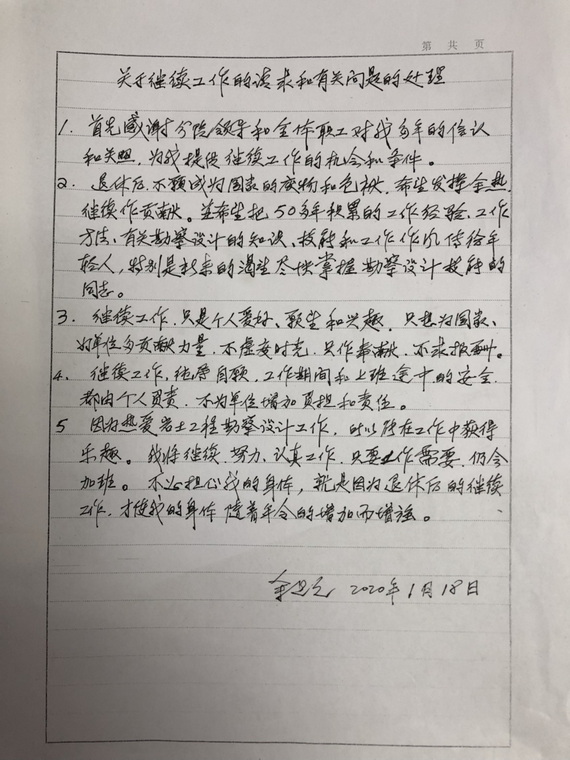 第 共 页
关于继续工作的请求和有关问题的处理
1. 首先感谢分院领导和全体职工对我多年的信认
和关照,为我提供继续工作的机会和条件。
2. 退休后,不愿成为国家的废物和包袱,希望发挥余热,
继续作贡献。并希望把50多年积累的工作经验、工作
方法、有关勘察设计的知识、技能和工作作风传给年
轻人,特别是新来的渴望尽快掌握勘察设计技能的
同志。
3. 继续工作,只是个人爱好、愿望和兴趣,只想为国家、
为单位多贡献力量,不虚度时光,只作奉献,不求报酬。
4. 继续工作,纯属自愿,工作期间和上班途中的安全
都由个人负责,不为单位增加负担和责任。
5 因为热爱岩土工程勘察设计工作,所以能在工作中获得
乐趣。我将继续努力、认真工作,只要工作需要,仍会
加班。不必担心我的身体,就是因为退休后的继续
工作,才使我的身体随着年令的增加而增强。
2020年1月18日